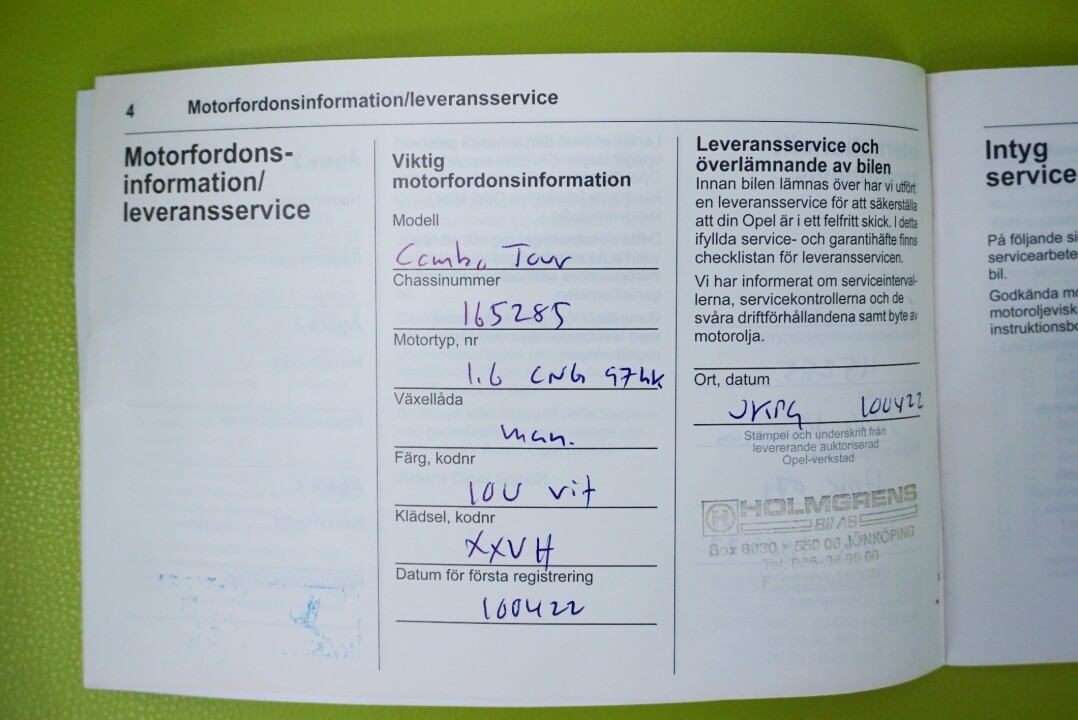 4 Motorfordonsinformation/leveransservice
Motorfordons-
information/
leveransservice
Viktig
motorfordonsinformation
Modell
Combo Tour
Chassinummer
165285
Motortyp, nr
1.6 CNG 97hk
Växellåda
man.
Färg, kodnr
10U vit
Klädsel, kodnr
XXVH
Datum för första registrering
100422
Leveransservice och
överlämnande av bilen
Innan bilen lämnas över har vi utfört
en leveransservice för att säkerställa
att din Opel är i ett felfritt skick. I detta
ifyllda service- och garantihäfte finns
checklistan för leveransservicen.
Vi har informerat om serviceinterval-
lerna, servicekontrollerna och de
svåra driftförhållandena samt byte av
motorolja.
Ort, datum
JKPG 100422
Stämpel och underskrift från
levererande auktoriserad
Opel-verkstad
HOLMGRENS
Bil AB
Box 6030 • 550 06 JÖNKÖPING
Intyg
service
På följande si
servicearbete
bil.
Godkända mo
motoroljevisk
instruktionsbo